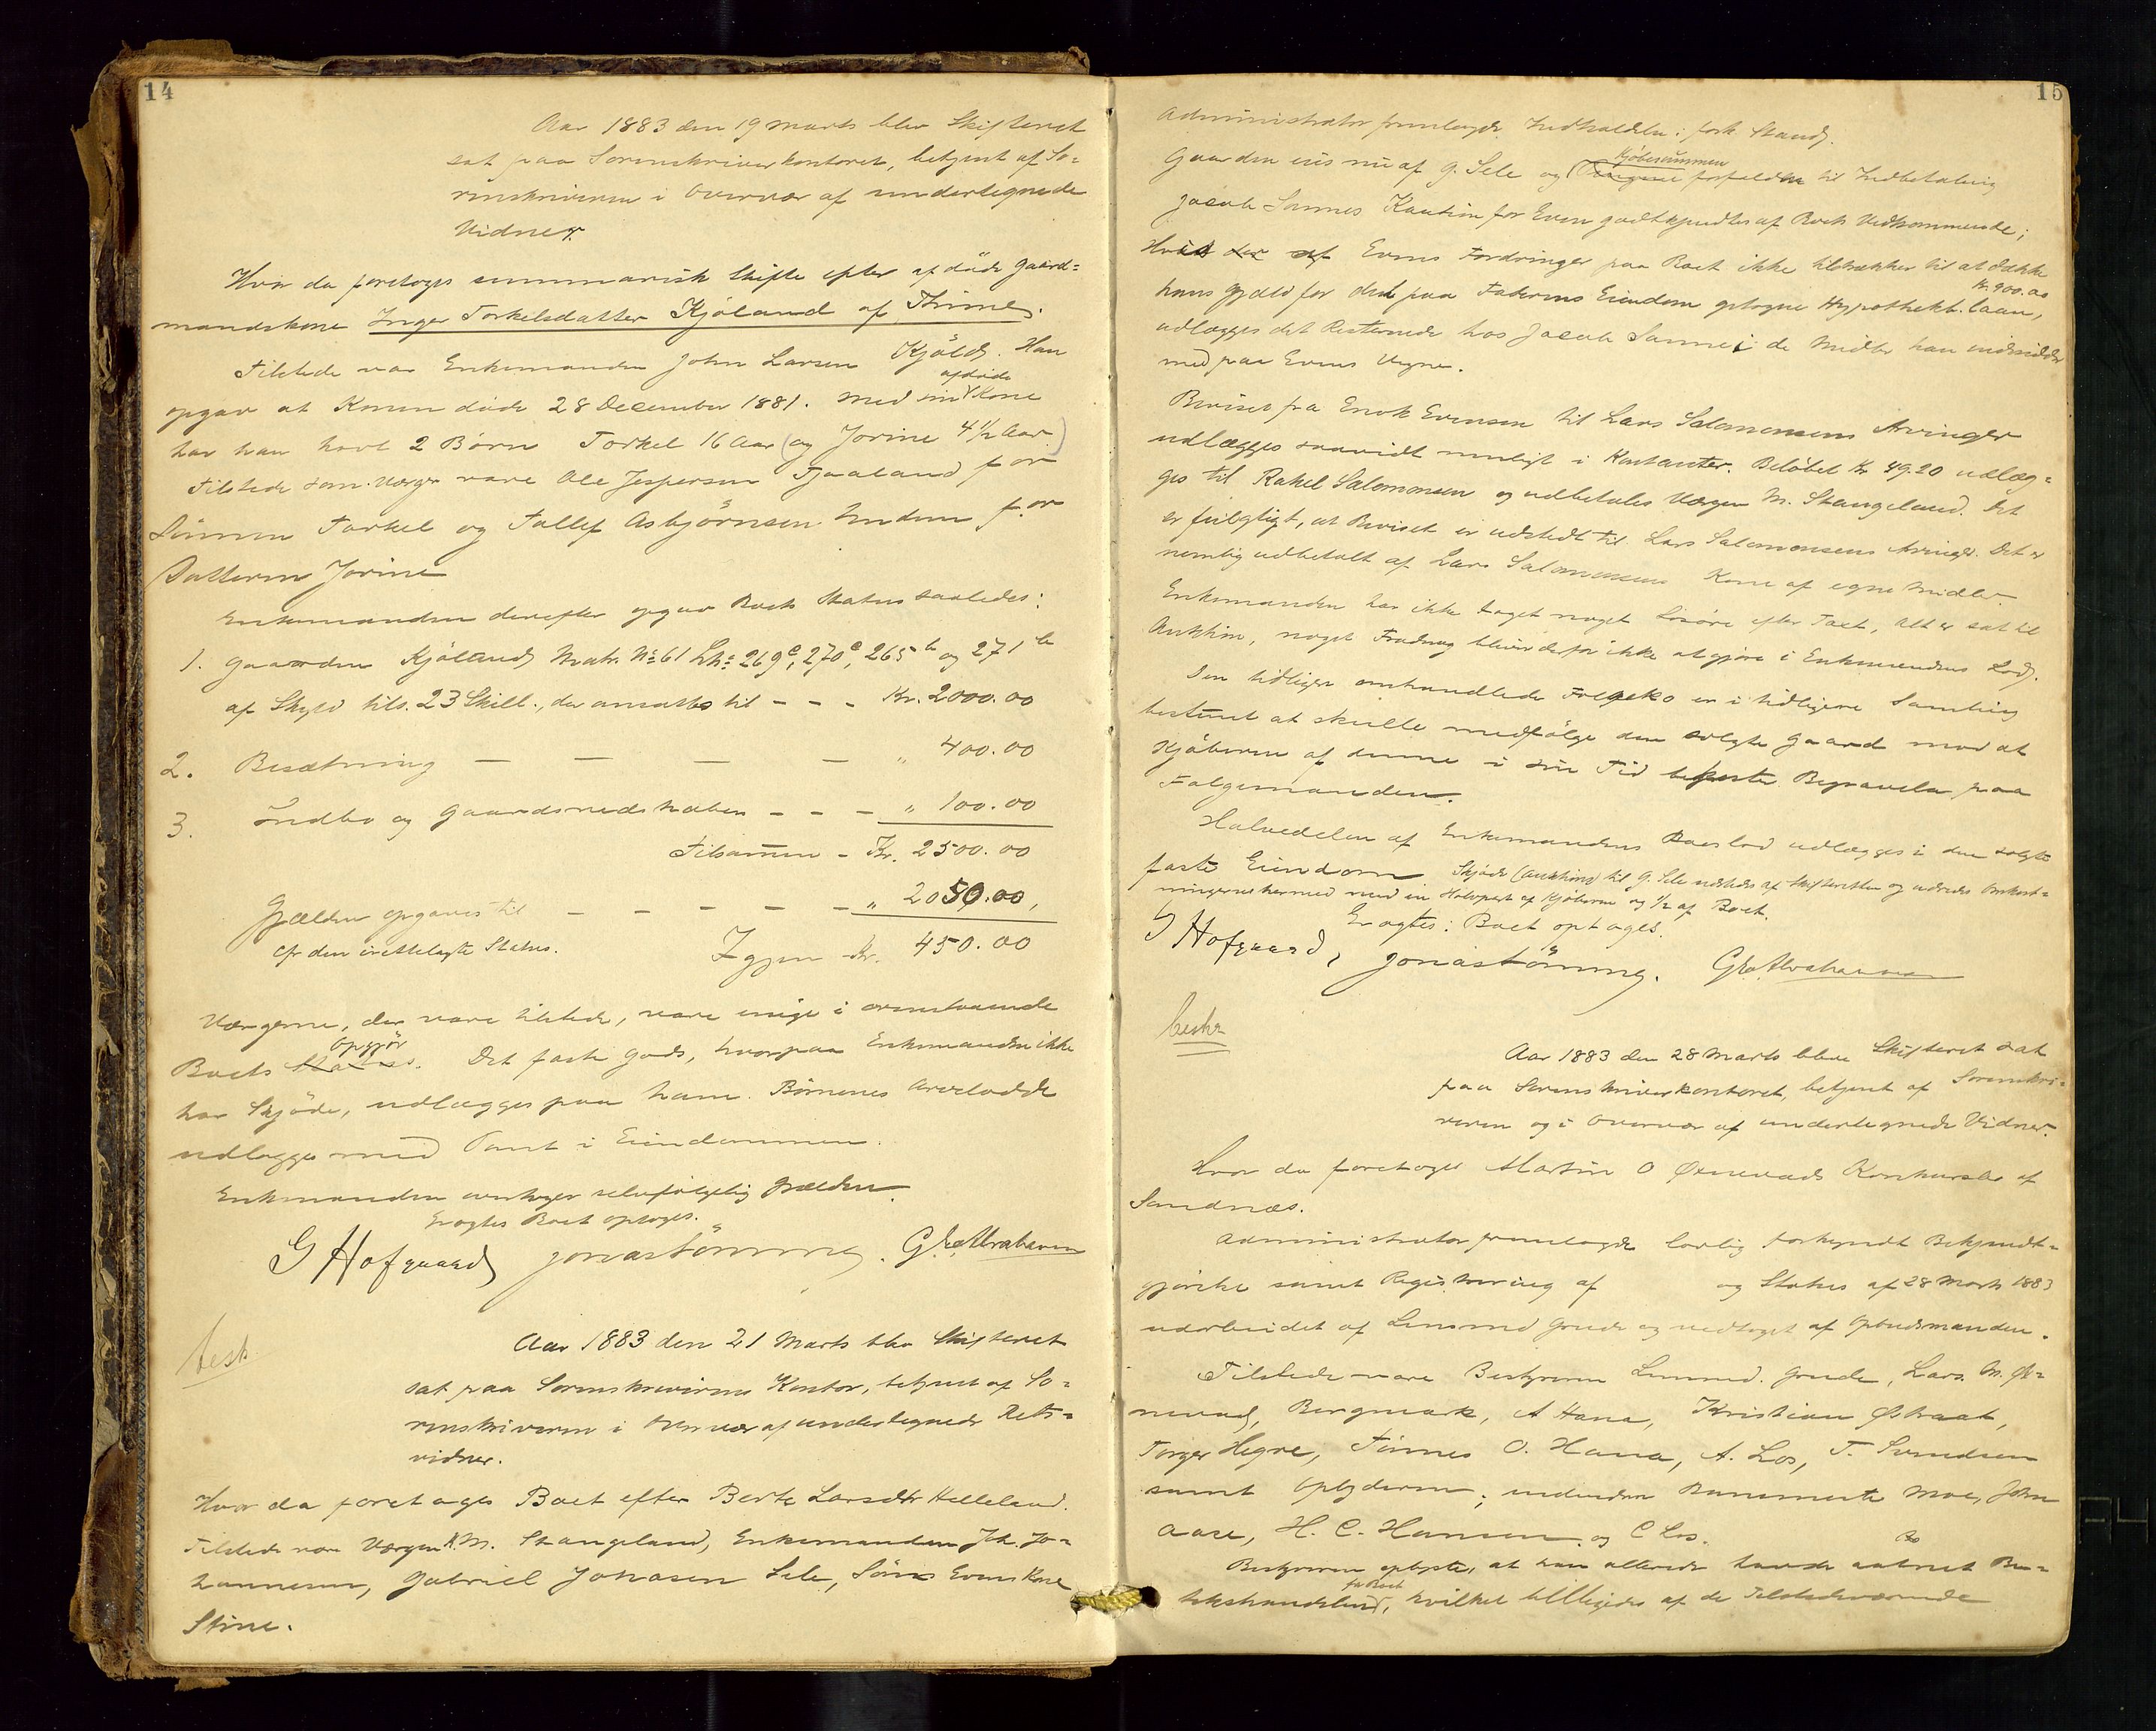 14
Aar 1883 den 19 Marts blev Skifteret
sat paa Sorenskriverkontoret, betjent af So-
renskriveren i Overvær af undertegnede
Vidner.
Hvor da foretoges summarisk Skifte efter afdöde Gaard-
mandskone Inger Torkelsdatter Kjöland af Thime.
Tilstede var Enkemanden John Larsen Kjölds. Han
opgav at Konen döde 28 December 1881. Med sin afdöde Kone
har han havt 2 Børn Torkel 16 Aar (og Jorine 4 1/2 Aar)
Tilstede som Værger vare Ole Jespersen Tjaaland for
Sönnen Torkel og Tollef Asbjörnsen Undem for
Datteren Jorine
Enkemanden derefter opgav Boets Status saaledes:
1. Gaarden Kjöland Matr. No 61 Lno 269c, 270c, 265b og 271b
af Skyld tils. 23 Skill., der ansattes til - - - Kr. 2000.00
2. Besætning — — — — " 400.00
3. Indbo og Gaardsredskaber - - - " 100.00
Tilsammen - Kr. 2500.00
Gjælden opgaves til - - - - - " 2050.00,
efr den irettelagte Status.
Igjen - Kr. 450.00
Værgerne, der vare tilstede, vare enige i ovenstaaende
Boets Status Opgjör. Det faste Gods, hvorpaa Enkemanden ikke
har Skjöde, udlægges paa ham. Börnenes Arvelodde
udlægges med Pant i Eiendommen.
Enkemanden overtager selvfölgelig Gjælden.
Eragtes Boet optages.
G Hofgaard Jonas Tönning. G E Abrahamsen
besk.
Aar 1883 den 21 Marts blev Skifteret
sat paa Sorenskriverens Kontor, betjent af So-
renskriveren i Overvær af undertegnede Rets-
vidner.
Hvor da foretages Boet efter Berte Larsdtr Helleland.
Tilstede vare Værgen K. M. Stangeland, Enkemanden Joh. Jo-
hannesen, Gabriel Jonasen Sele, Söns Evens Kone
Stine.
15
Administrator fremlagde Indkaldelse i fork. Stand.
Gaarden eies nu af G. Sele og Kjöbesummen forfalden til Indbetaling
Jacob Sannes Kaution for Even godtkjendtes af Boets Vedkommende;
Hvis der af Evens Fordringer paa Boet ikke tilstrækker til at dække
hans Gjæld for det paa Faderens Eiendom optagne Hypothekl. laan, Kr. 900.00
udlægges det Resterende hos Jacob Sanne i de Midler han indesidder
med paa Evens Vegne.
Beviset fra Enok Evensen til Lars Salomonsens Arvinger
udlægges saavidt muligt i Kontanter. Beløbet Kr 49.20 udlæg-
ges til Rakel Salomonsen og udbetales Værgen M. Stangeland. Det
er feilagtigt, at Beviset er udstedt til Lars Salomonsens Arvinger. Det er
nemlig udbetalt af Lars Salomonsens Kone af egne Midler.
Enkemanden har ikke taget noget Lösöre efter Taxt, Alt er sat til
Auktion, noget Fradrag bliver derfor ikke at gjøre i Enkemandens Lod.
Den tidligere omhandlede Folgeko er i tidligere Samling
bestemt at skulle medfölge den solgte Gaard mod at
Kjöberen af denne i sin Tid bekoste Begravelse paa
Folgemanden.
Halvedelen af Enkemandens Boeslod udlægges i den solgte
faste Eiendom Skjöde (Auktions) til G. Sele udstedes af Skifteretten og udredes Omkost-
ningerne hermed med en Halvpart af Kjöberen og 1/2 af Boet.
Eragtes: Boet optages.
G Hofgaard, Jonas Tönning. G E Abrahamsen
beskr
Aar 1883 den 28 Marts blev Skifteret sat
paa Sorenskriverkontoret, betjent af Sorenskri-
veren og i Overvær af undertegnede Vidner.
Hvor da foretoges Martin O Øxnevads Konkursbo af
Sandnæs.
Administrator fremlagde lovlig forkyndt Bekjendt-
gjörelse samt Registrering af og Status af 28 Marts 1883
udarbeidet af Lensmd Grude og vedtaget af Opbudsmanden.
Tilstede vare Bestyreren Lensmd. Grude, Lars M. Øx-
nevad, Bergmark, A Hana, Kristian Østraat,
Torger Hegre, Tönnes O. Hana, A. Los, T. Svendsen
samt Opbyderen; endvidere Bundmester Moe, John
Aase, H. C. Hansen og C Los.
Bestyreren oplyste, at han allerede havde aabnet Bu-
tikshandelen for Boet, hvilket billigedes af de Tilstedeværende